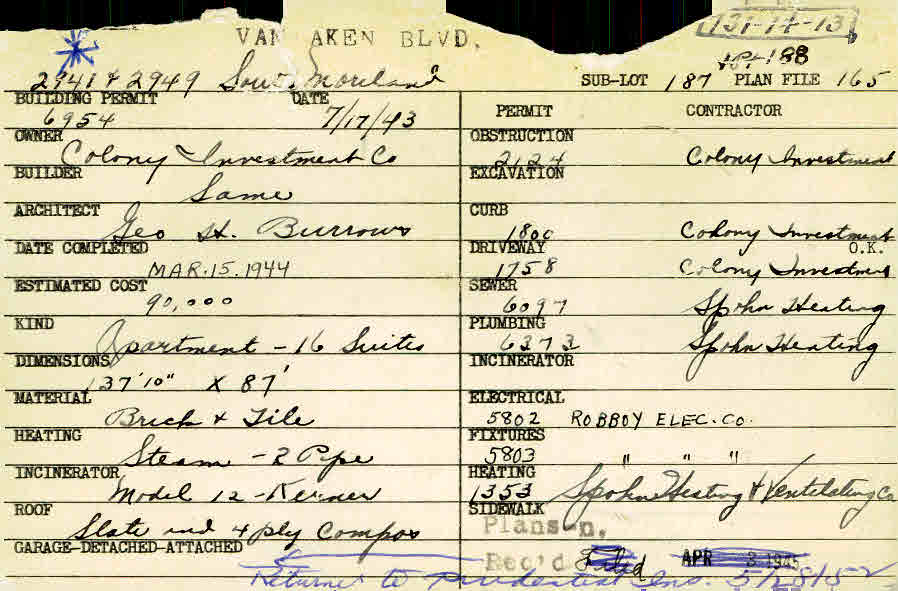 131-14-13
VAN AKEN BLVD.
188
2941 & 2949 South Moreland SUB-LOT 187 PLAN FILE 165
BUILDING PERMIT DATE
6954 7/17/43
OWNER
Colony Investment Co
BUILDER
Same
ARCHITECT
Geo H. Burrows
DATE COMPLETED
MAR. 15. 1944
ESTIMATED COST
90,000
KIND
Apartment - 16 Suites
DIMENSIONS
137'10" X 87'
MATERIAL
Brick & Tile
HEATING
Steam - 2 Pipe
INCINERATOR
Model 12 - Kerner
ROOF
Slate and 4 ply Compos
GARAGE-DETACHED-ATTACHED
PERMIT CONTRACTOR
OBSTRUCTION
2124 Colony Investment
EXCAVATION
CURB
1800 Colony Investment
DRIVEWAY O.K.
1758 Colony Investment
SEWER
6097 Spohn Heating
PLUMBING
6373 Spohn Heating
INCINERATOR
ELECTRICAL
5802 ROBBOY ELEC. CO.
FIXTURES
5803 " " "
HEATING
1353 Spohn Heating & Ventilating Co
SIDEWALK
Plans on,
Rec'd Filed APR 3 1945
Returned to Prudential Ins. 5/28/52